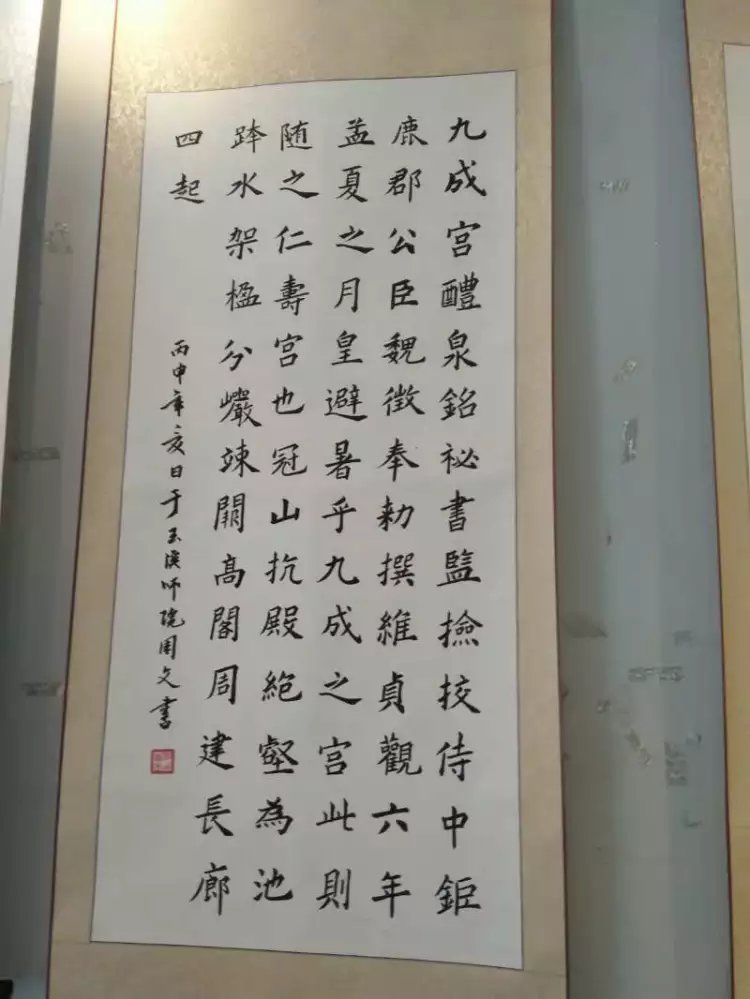 九成宫醴泉銘祕書監撿挍侍中鉅
鹿郡公臣魏徵奉勑撰維貞觀六年
孟夏之月皇避暑乎九成之宫此則
随之仁壽宫也冠山抗殿絶壑為池
跨水架楹分巖竦闕高閣周建長廊
四起
丙申年夏日于玉溪师院周文書